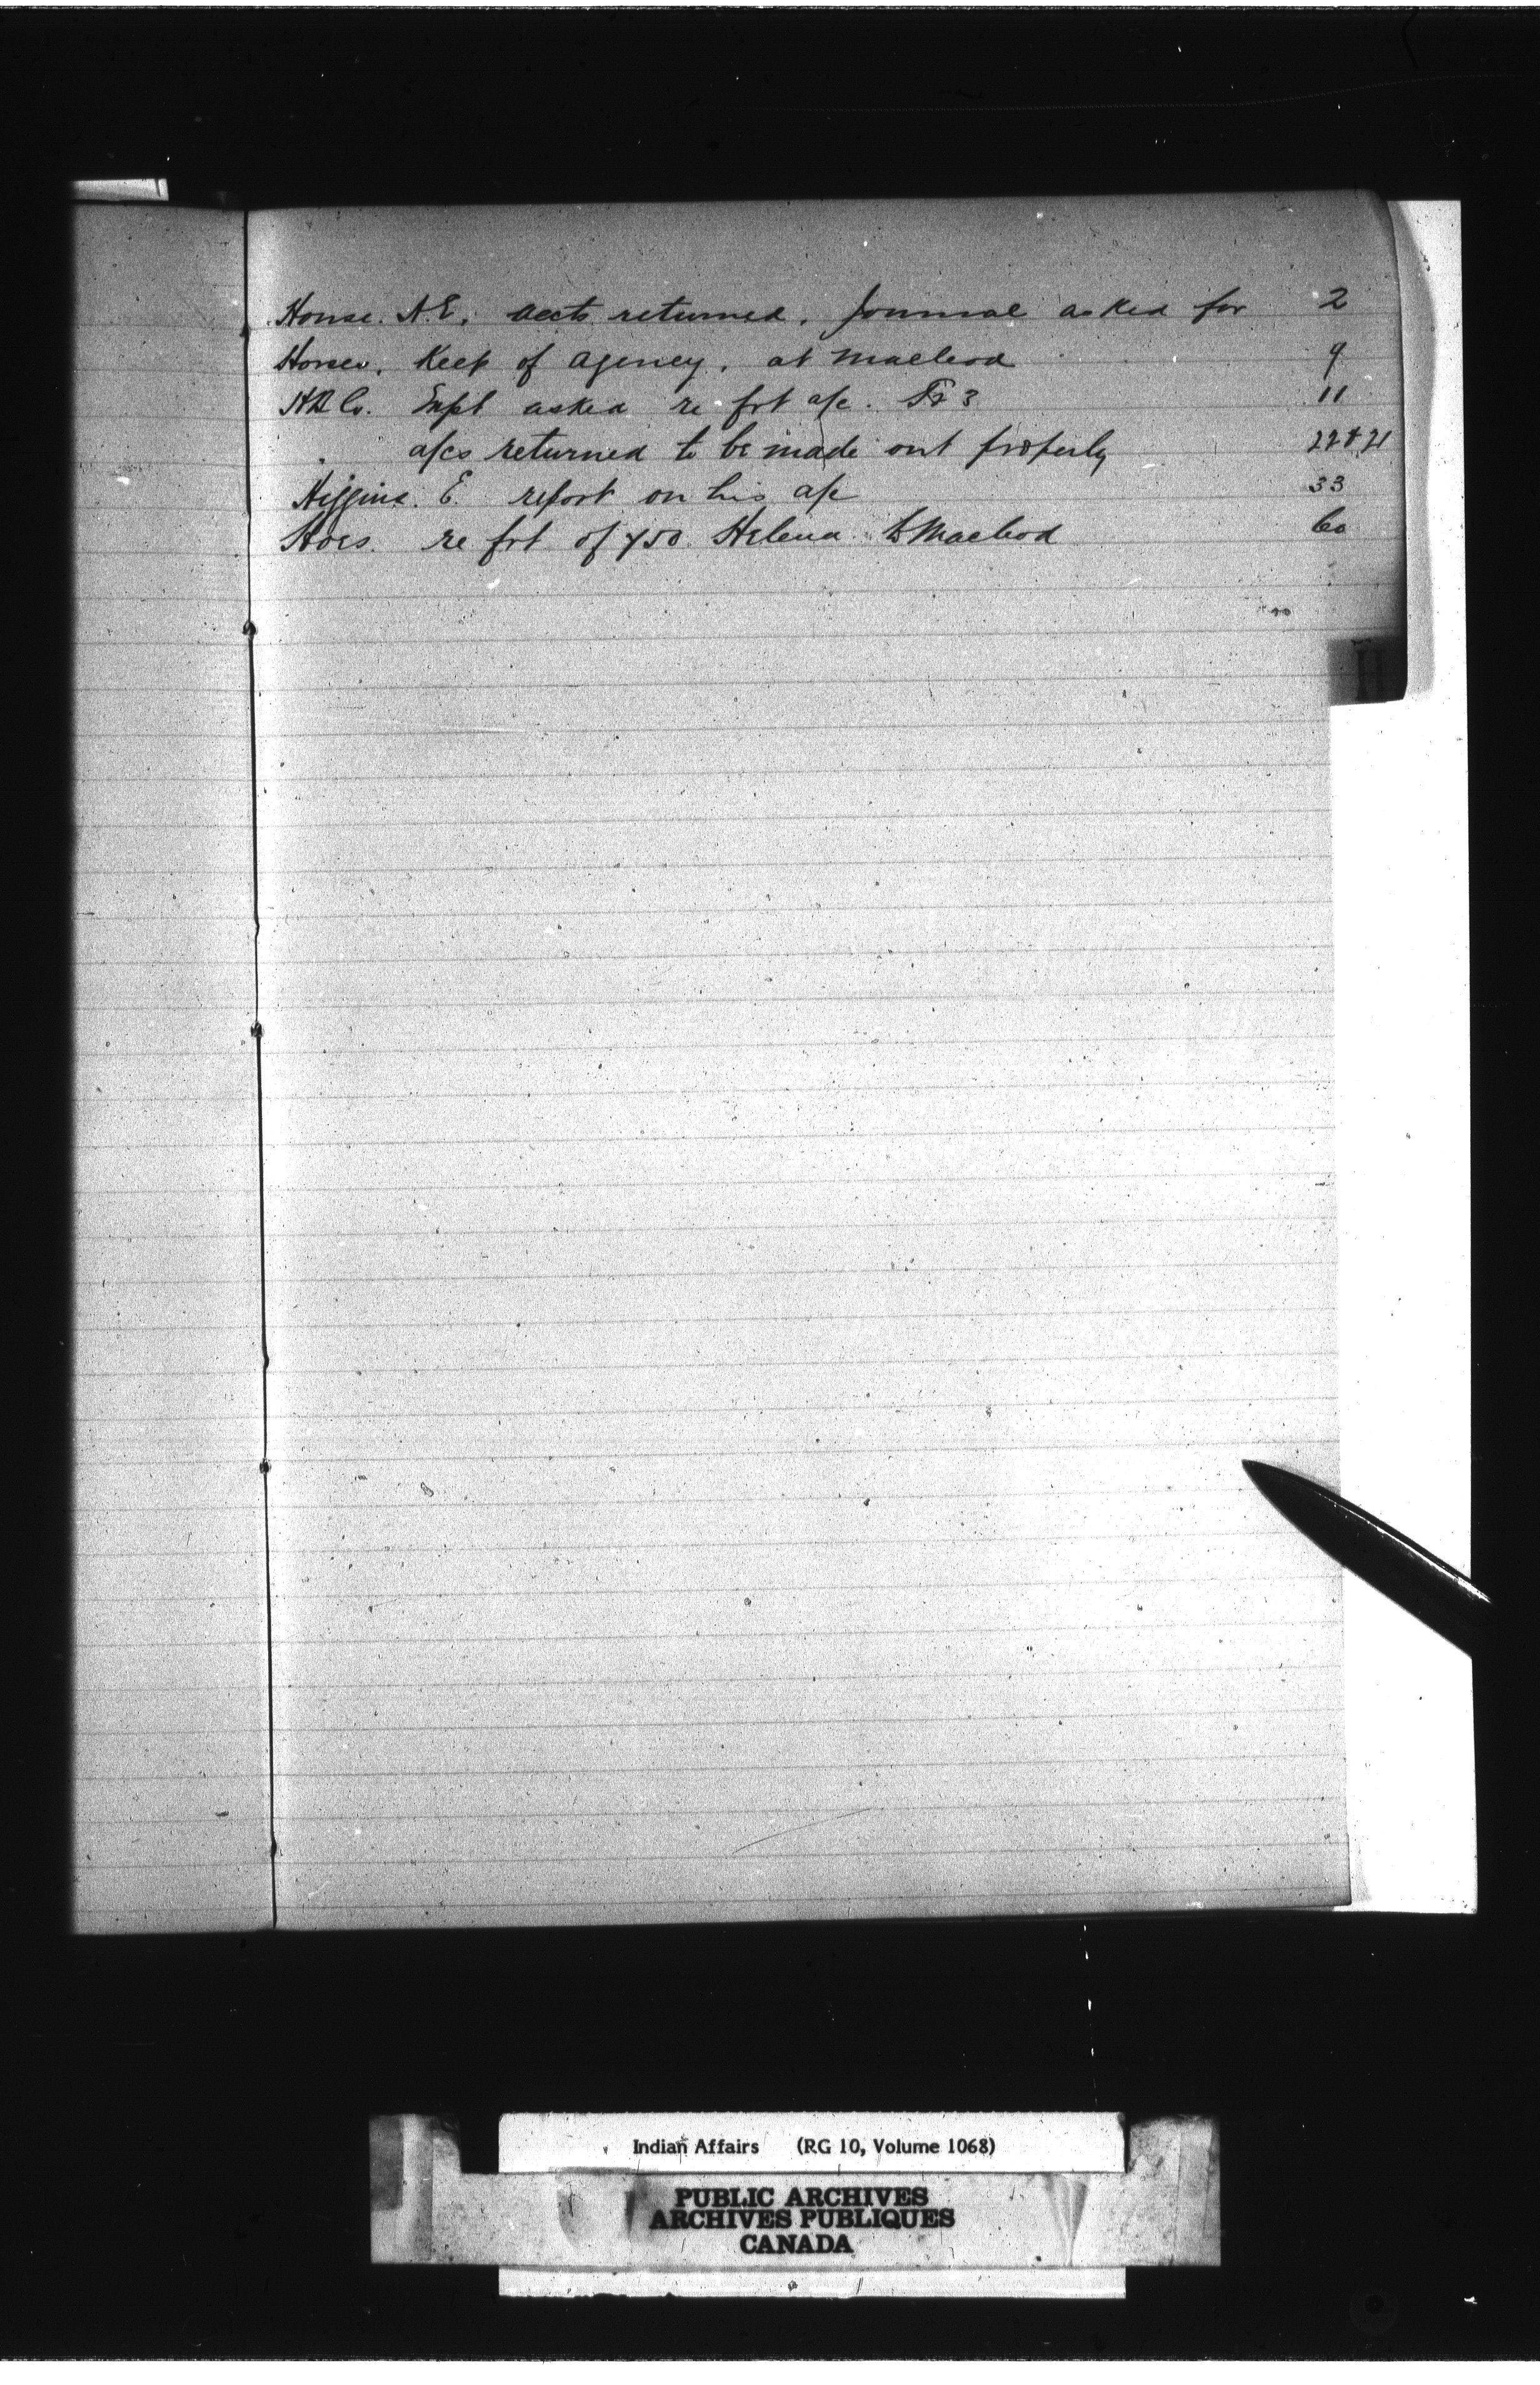 House. A.E. accts returned. Journal asked for 2
Horses. Keep of agency. at Macleod 9
H B Co. Expl asked re frt a/c. Tr 3 11
a/cs returned to be made out properly
Higgins. E. report on his a/c 33
Hoes. re frt of 450 Helena to Macleod 60
H
Indian Affairs (RG 10, Volume 1068)
PUBLIC ARCHIVES
ARCHIVES PUBLIQUES
CANADA